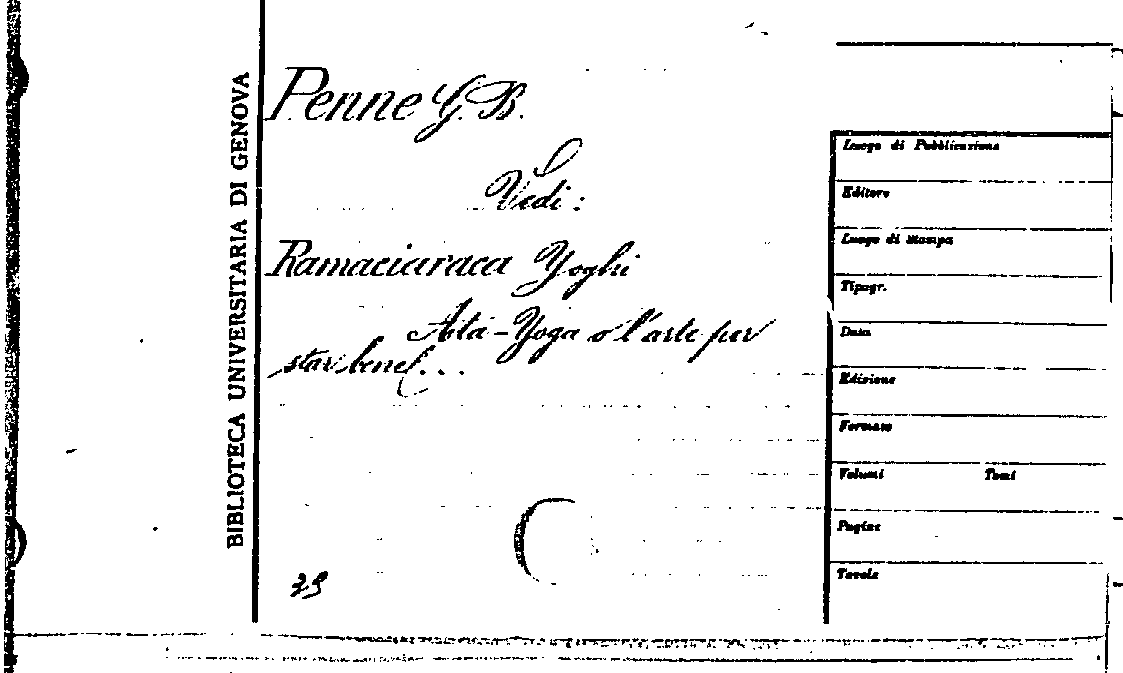 BIBLIOTECA UNIVERSITARIA DI GENOVA
Penne G. B.
Vedi:
Ramaciaraca Yoghi
Atá-Yoga o l'arte per
star bene...
29
Luogo di Pubblicazione
Editore
Luogo di stampa
Tipogr.
Data
Edizione
Formato
Volumi Tomi
Pagine
Tavole